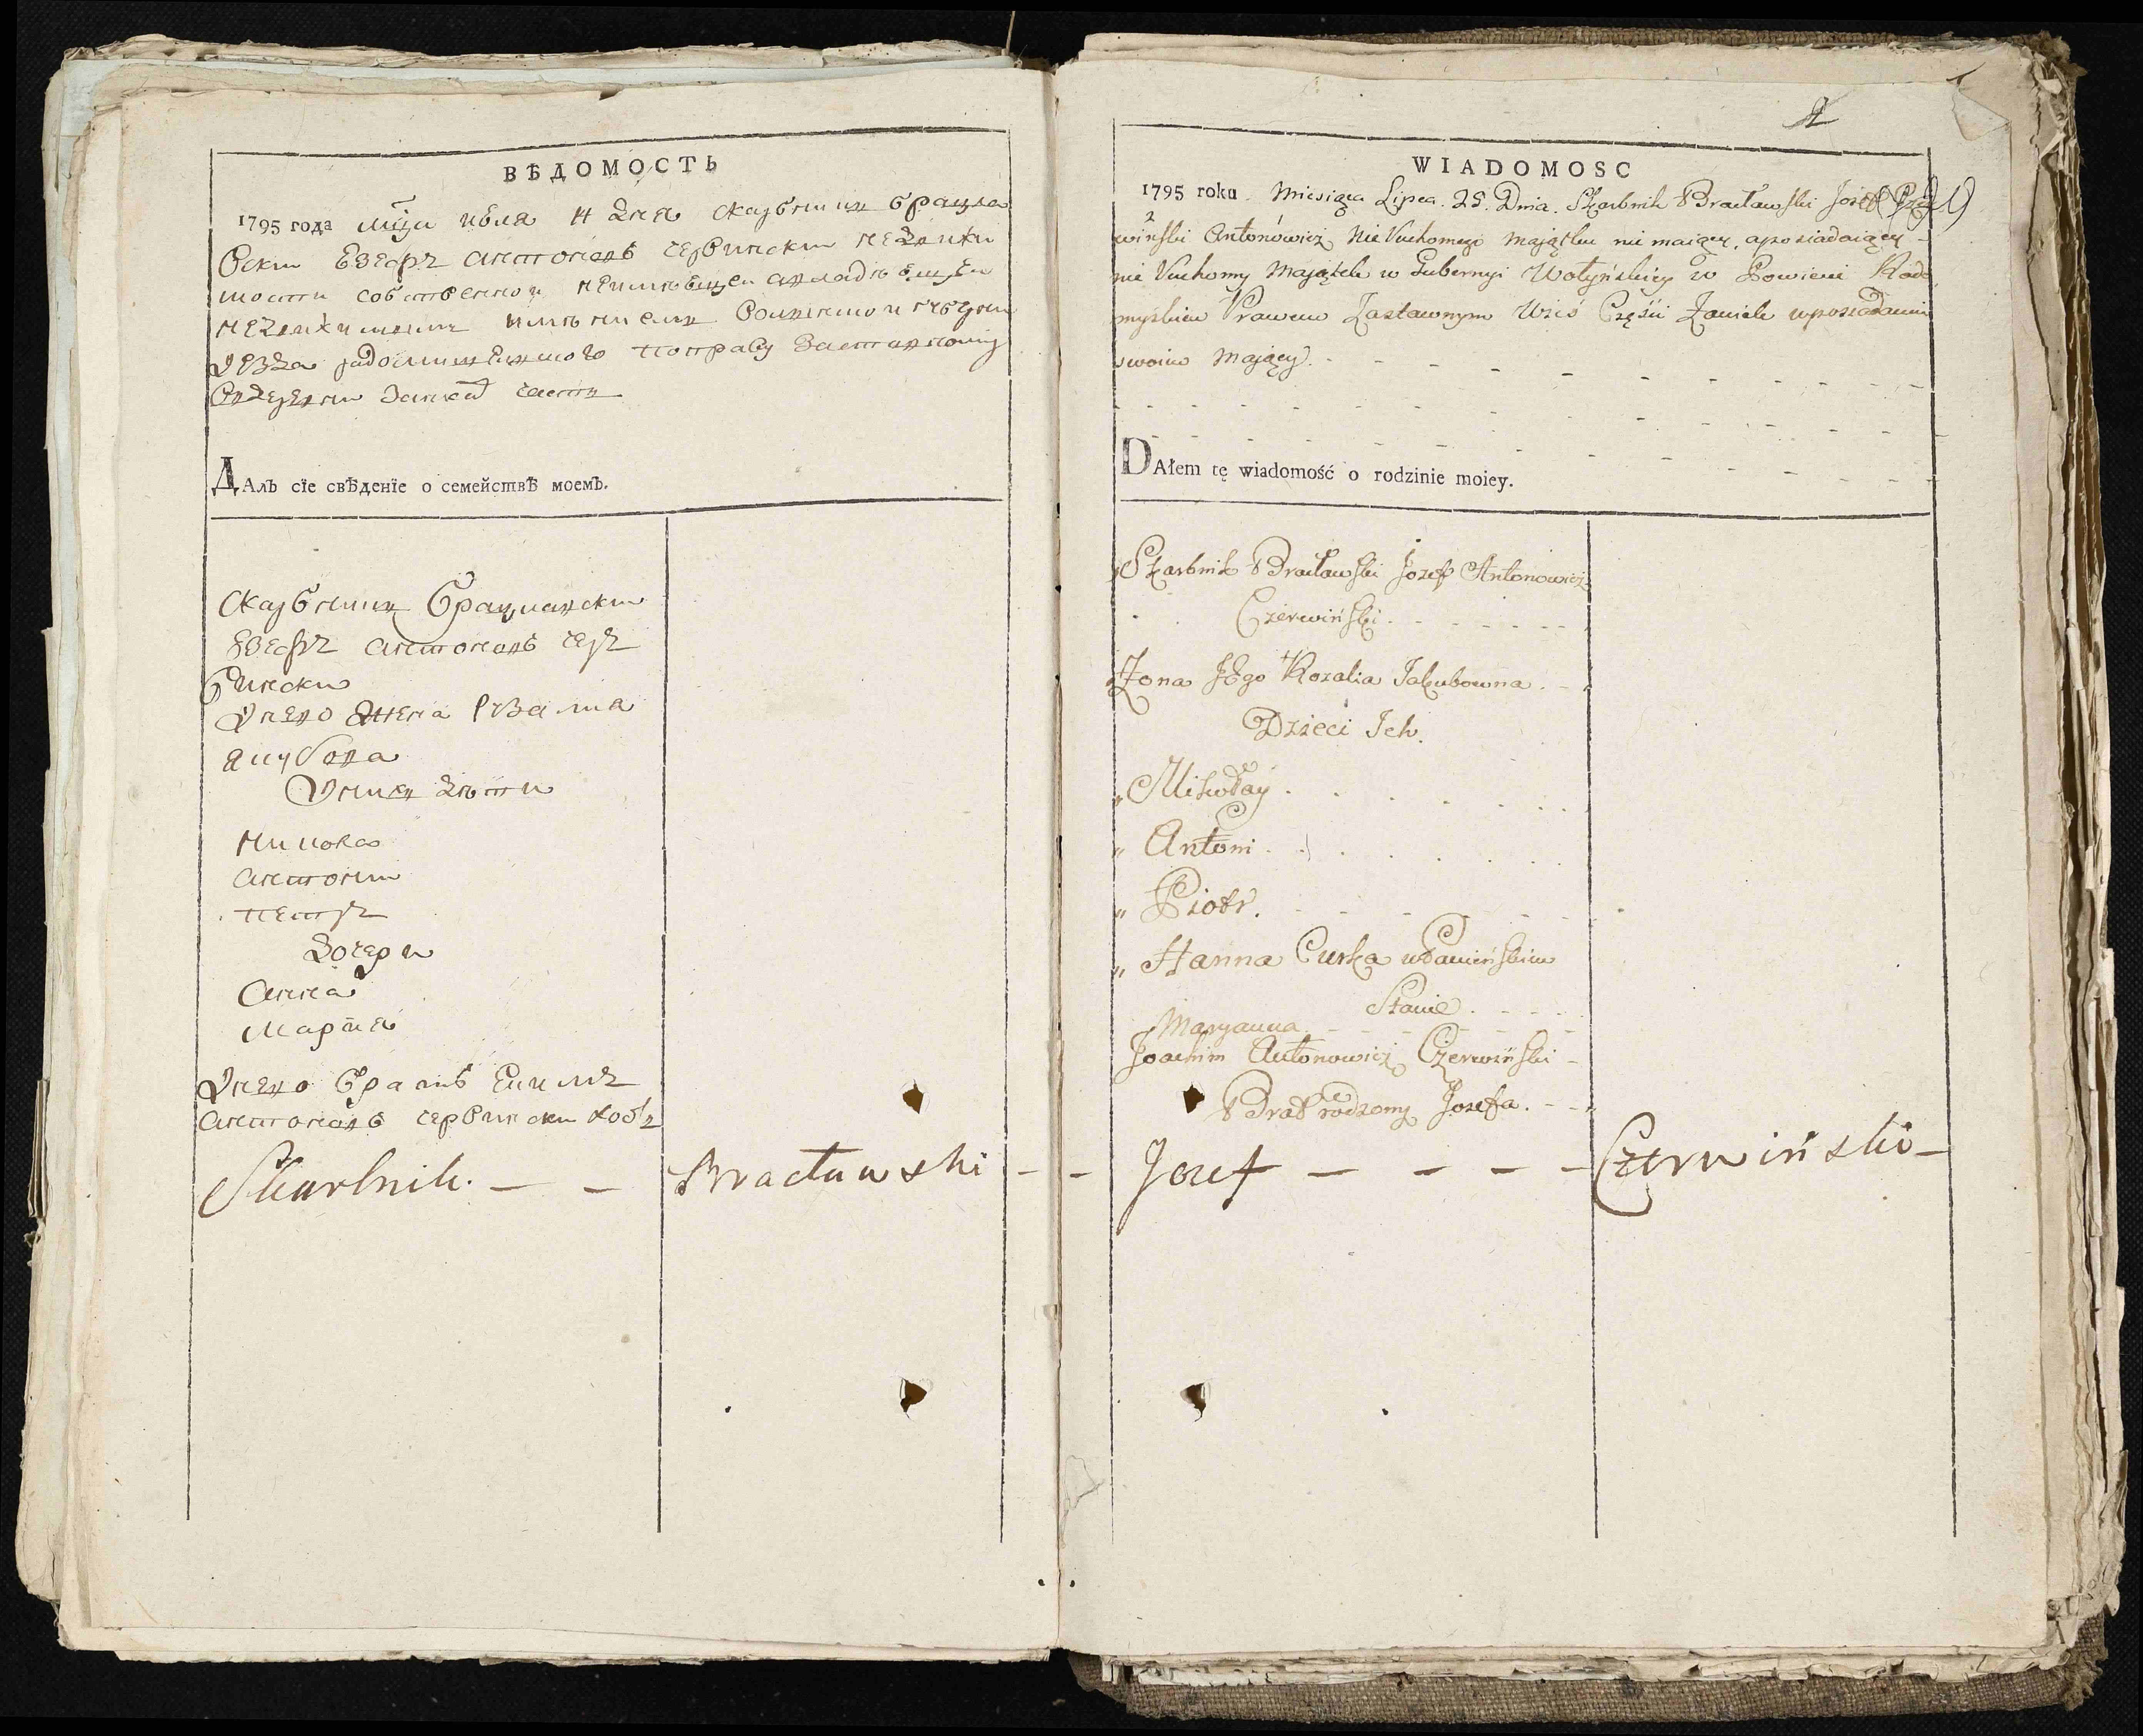 ВѢДОМОСТЬ
1795 года мца июля дня скарбники брацла
вски езефъ антоновъ червински недвижи
мости собственной неимѣющеи авладѣющеи
недвижимимъ имѣниемъ волынской губерни
уезда радомишлского поправу заставному
владении части
Далъ сїе свѣденїе о семействѣ моемъ.
скарбники брацлавски
езефъ антоновъ чер
вински
онево жена розалия
якубова
оних дѣти
миколай
антони
петръ
дочери
анна
мария
онево братъ екимъ
антоновъ червински
Skarbnik. — — Bracławski — — Jozef — — — — Czerwiński —
WIADOMOSC
1795 roku. Miesiąca Lipca. 25. Dnia. Skarbnik Bracławski Jozef Czer
wiński Antonowicz Nie Ruchomego Maiątku nie maiący, a posiadaiący
nie Ruchomy Maiątek w Gubernyi Wołyńskiey w Powiecie Rado
myslskim Prawem Zastawnym Wsiś Części w posiadaniu
swoim Mający.
DAłem tę wiadomość o rodzinie moiey.
Skarbnik Bracławski Jozef Antonowicz
Czerwiński
Zona JEgo Rozalia Jakubowna.
Dzieci Ich.
„ Mikołay
„ Antoni
„ Piotr.
„ Hanna Curka w Panieńskim
Stanie
Maryanna
Joachim Antonowicz Czerwiński
Brat rodzony Jozefa.